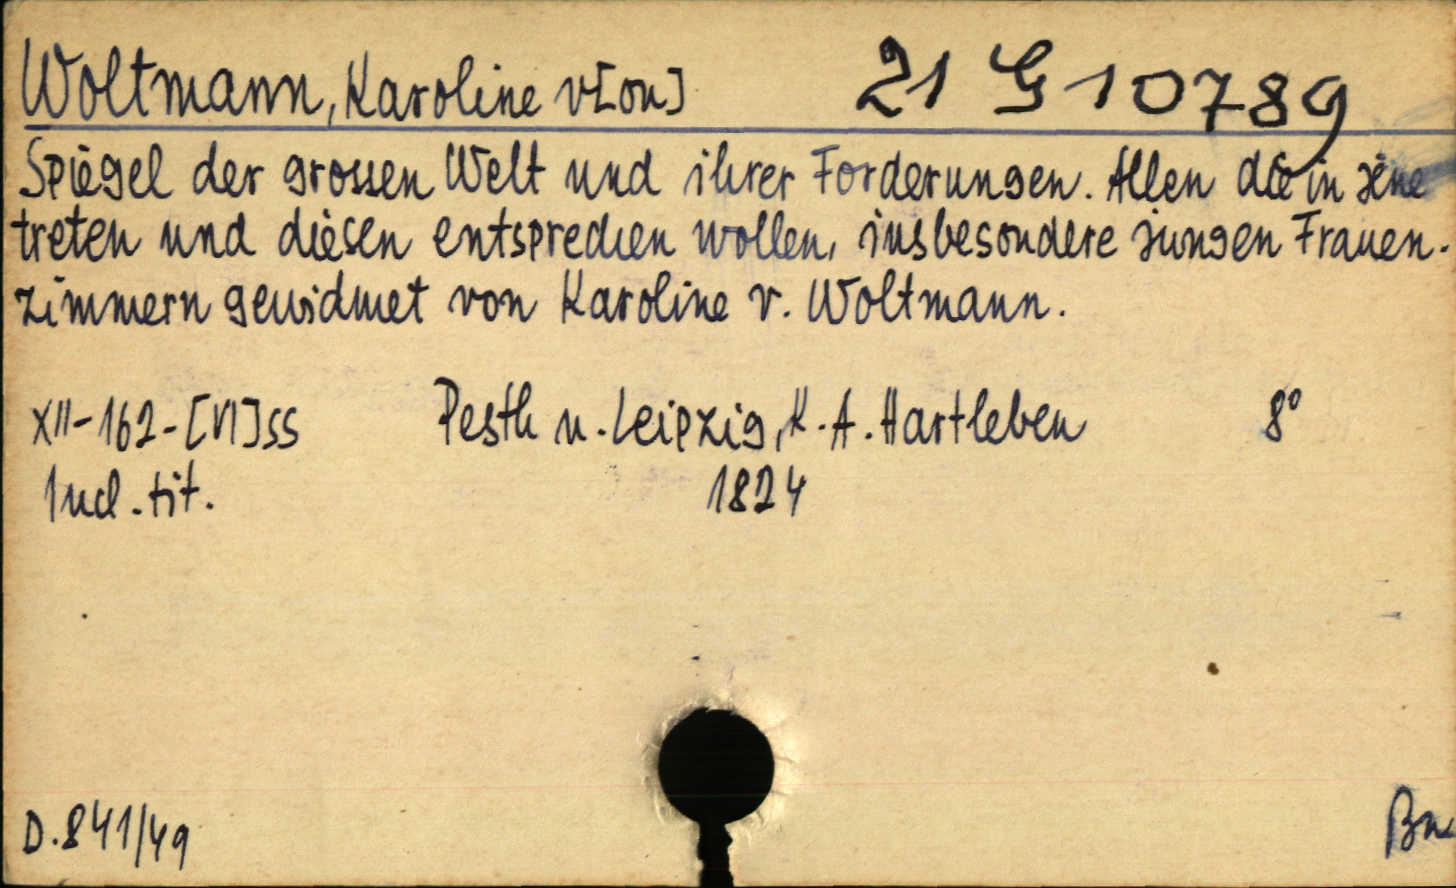 Woltmann, Karoline v[on] 21 G 10789
Spiegel der grossen Welt und ihrer Forderungen. Allen die in jene
treten und diesen entsprechen wollen, insbesondere jungen Frauen-
zimmern gewidmet von Karoline v. Woltmann.
XII-162-[VI]ss Pesth u. Leipzig, K. A. Hartleben 8°
Incl. tit. 1824
D. 841/49 Bn